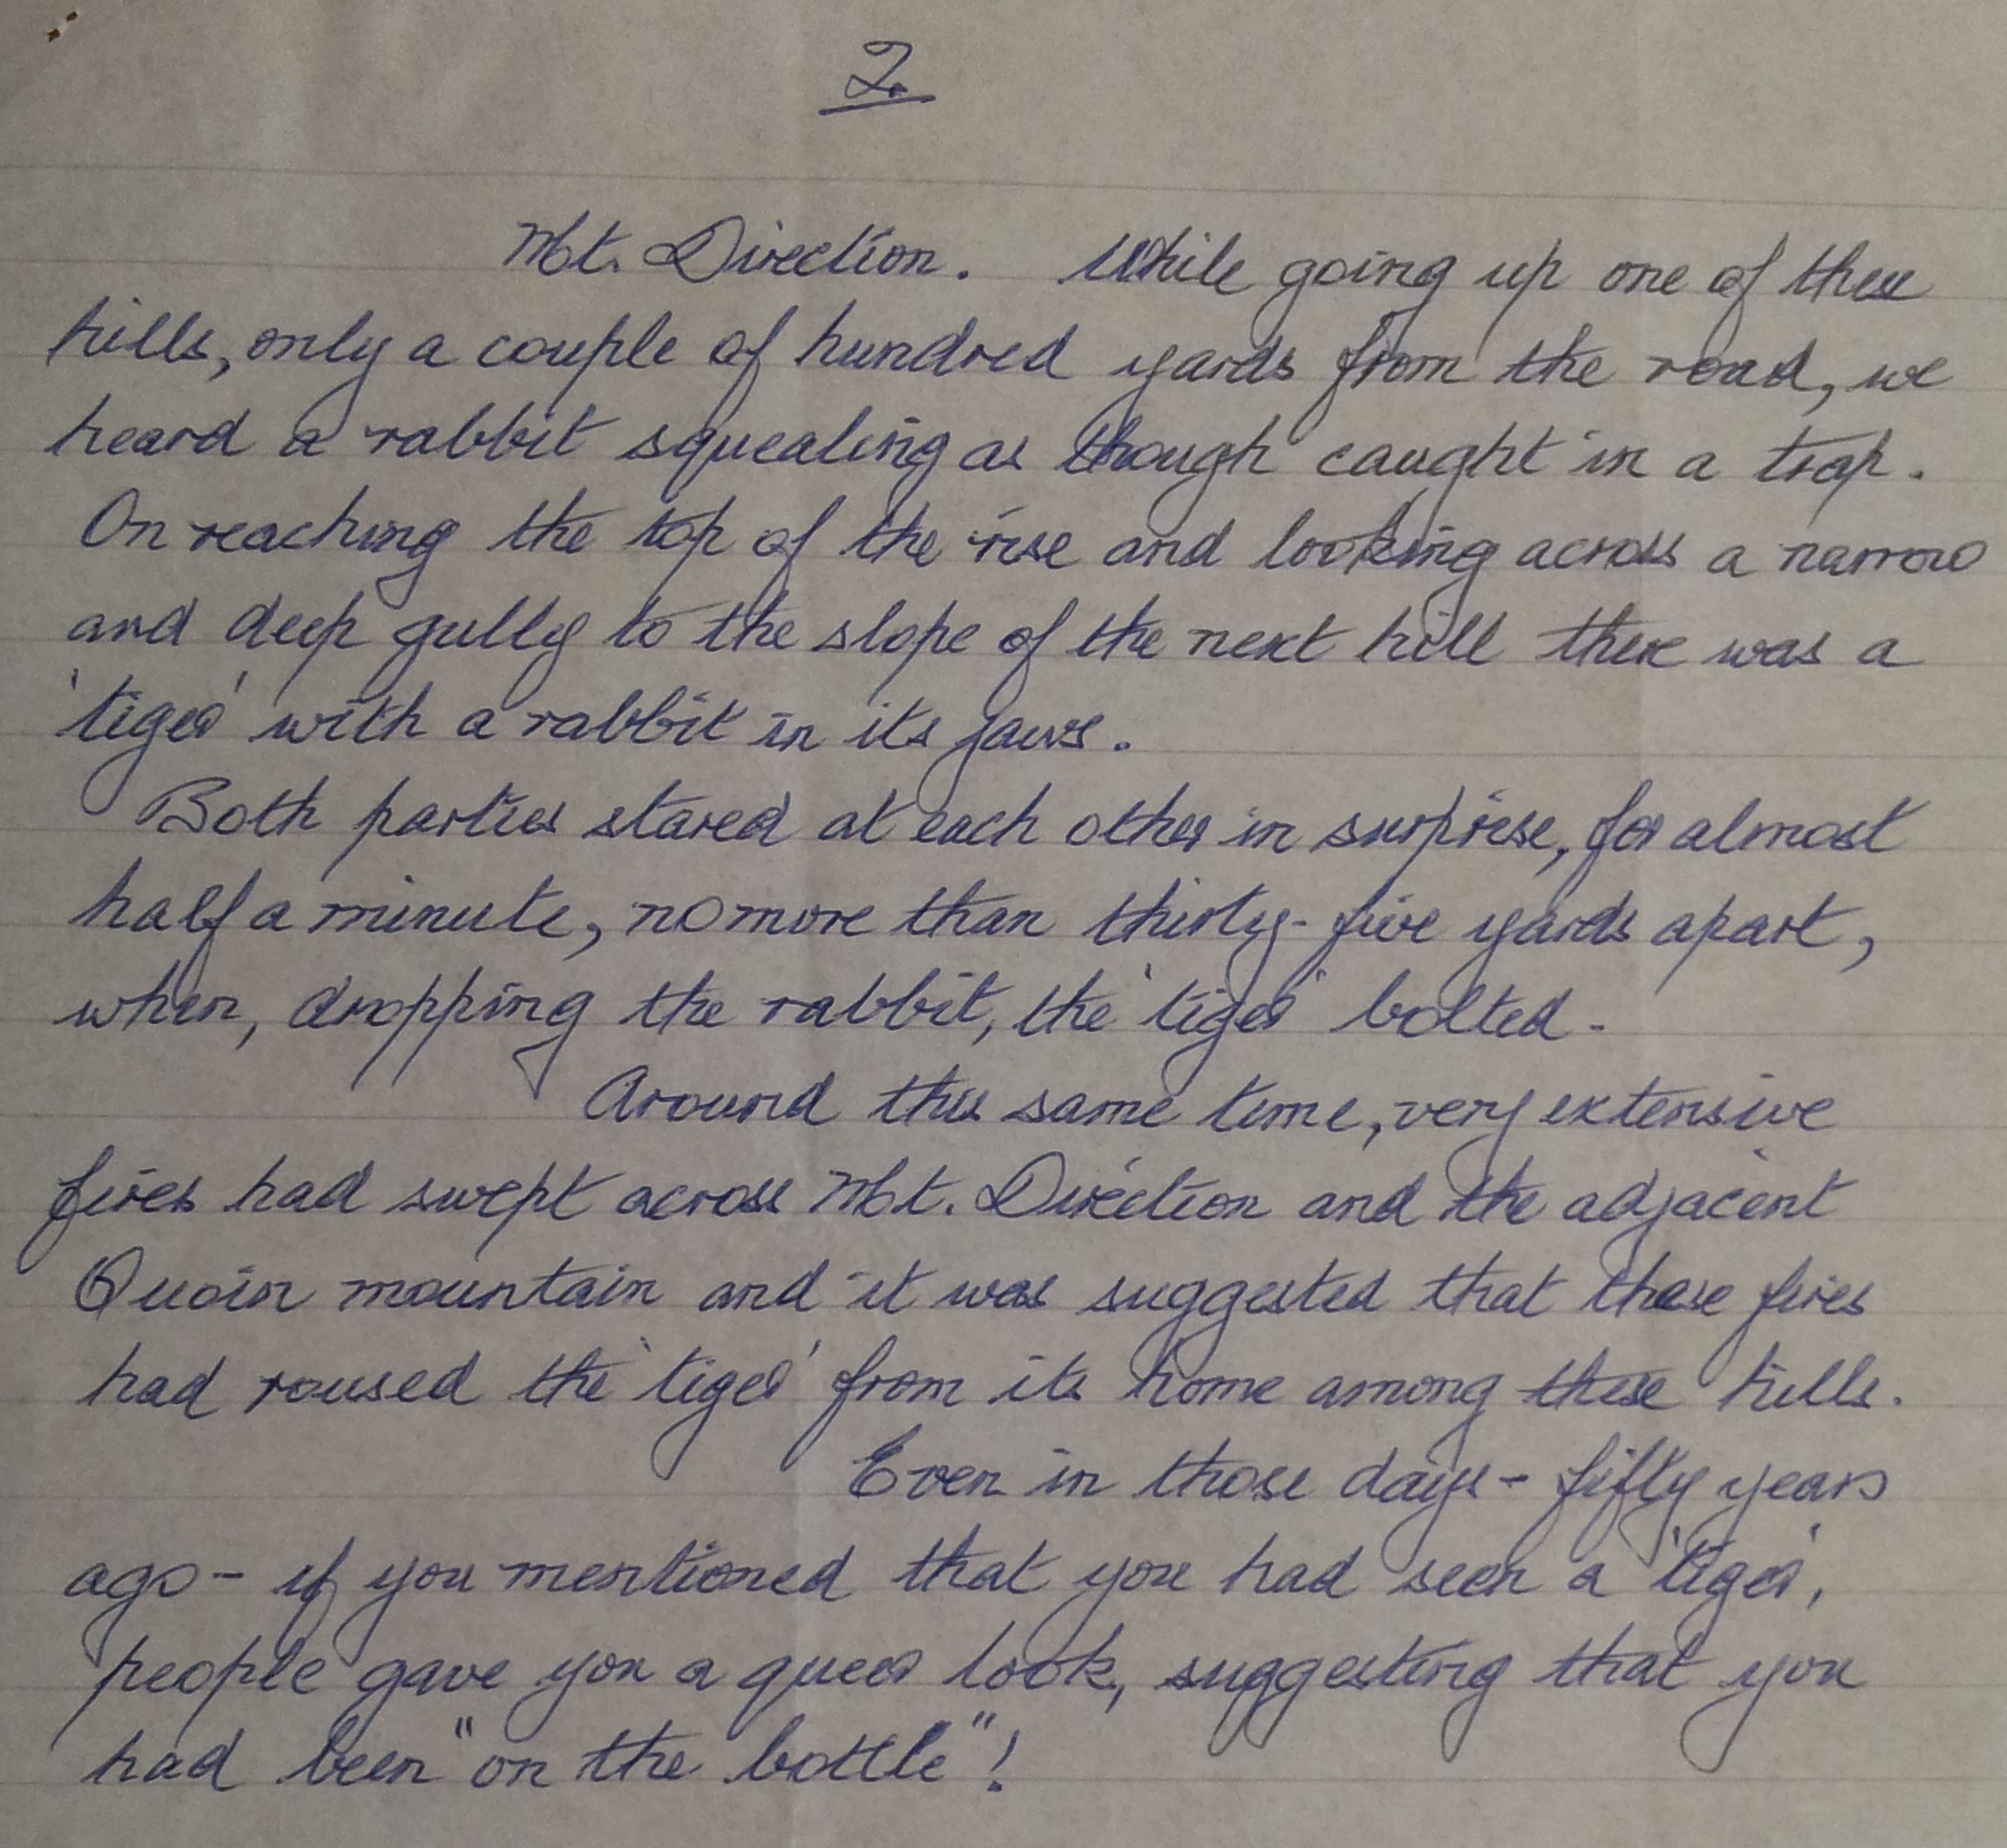 2.
Mt. Direction. While going up one of these
hills, only a couple of hundred yards from the road, we
heard a rabbit squealing as though caught in a trap.
On reaching the top of the rise and looking across a narrow
and deep gully to the slope of the next hill there was a
'tiger' with a rabbit in its jaws.
Both parties stared at each other in surprise, for almost
half a minute, no more than thirty-five yards apart,
when, dropping the rabbit, the 'tiger' bolted.
Around this same time, very extensive
fires had swept across Mt. Direction and the adjacent
Quoin mountain and it was suggested that these fires
had roused the 'tiger' from its home among these hills.
Even in those days - fifty years
ago - if you mentioned that you had seen a 'tiger',
people gave you a queer look, suggesting that you
had been "on the bottle"!